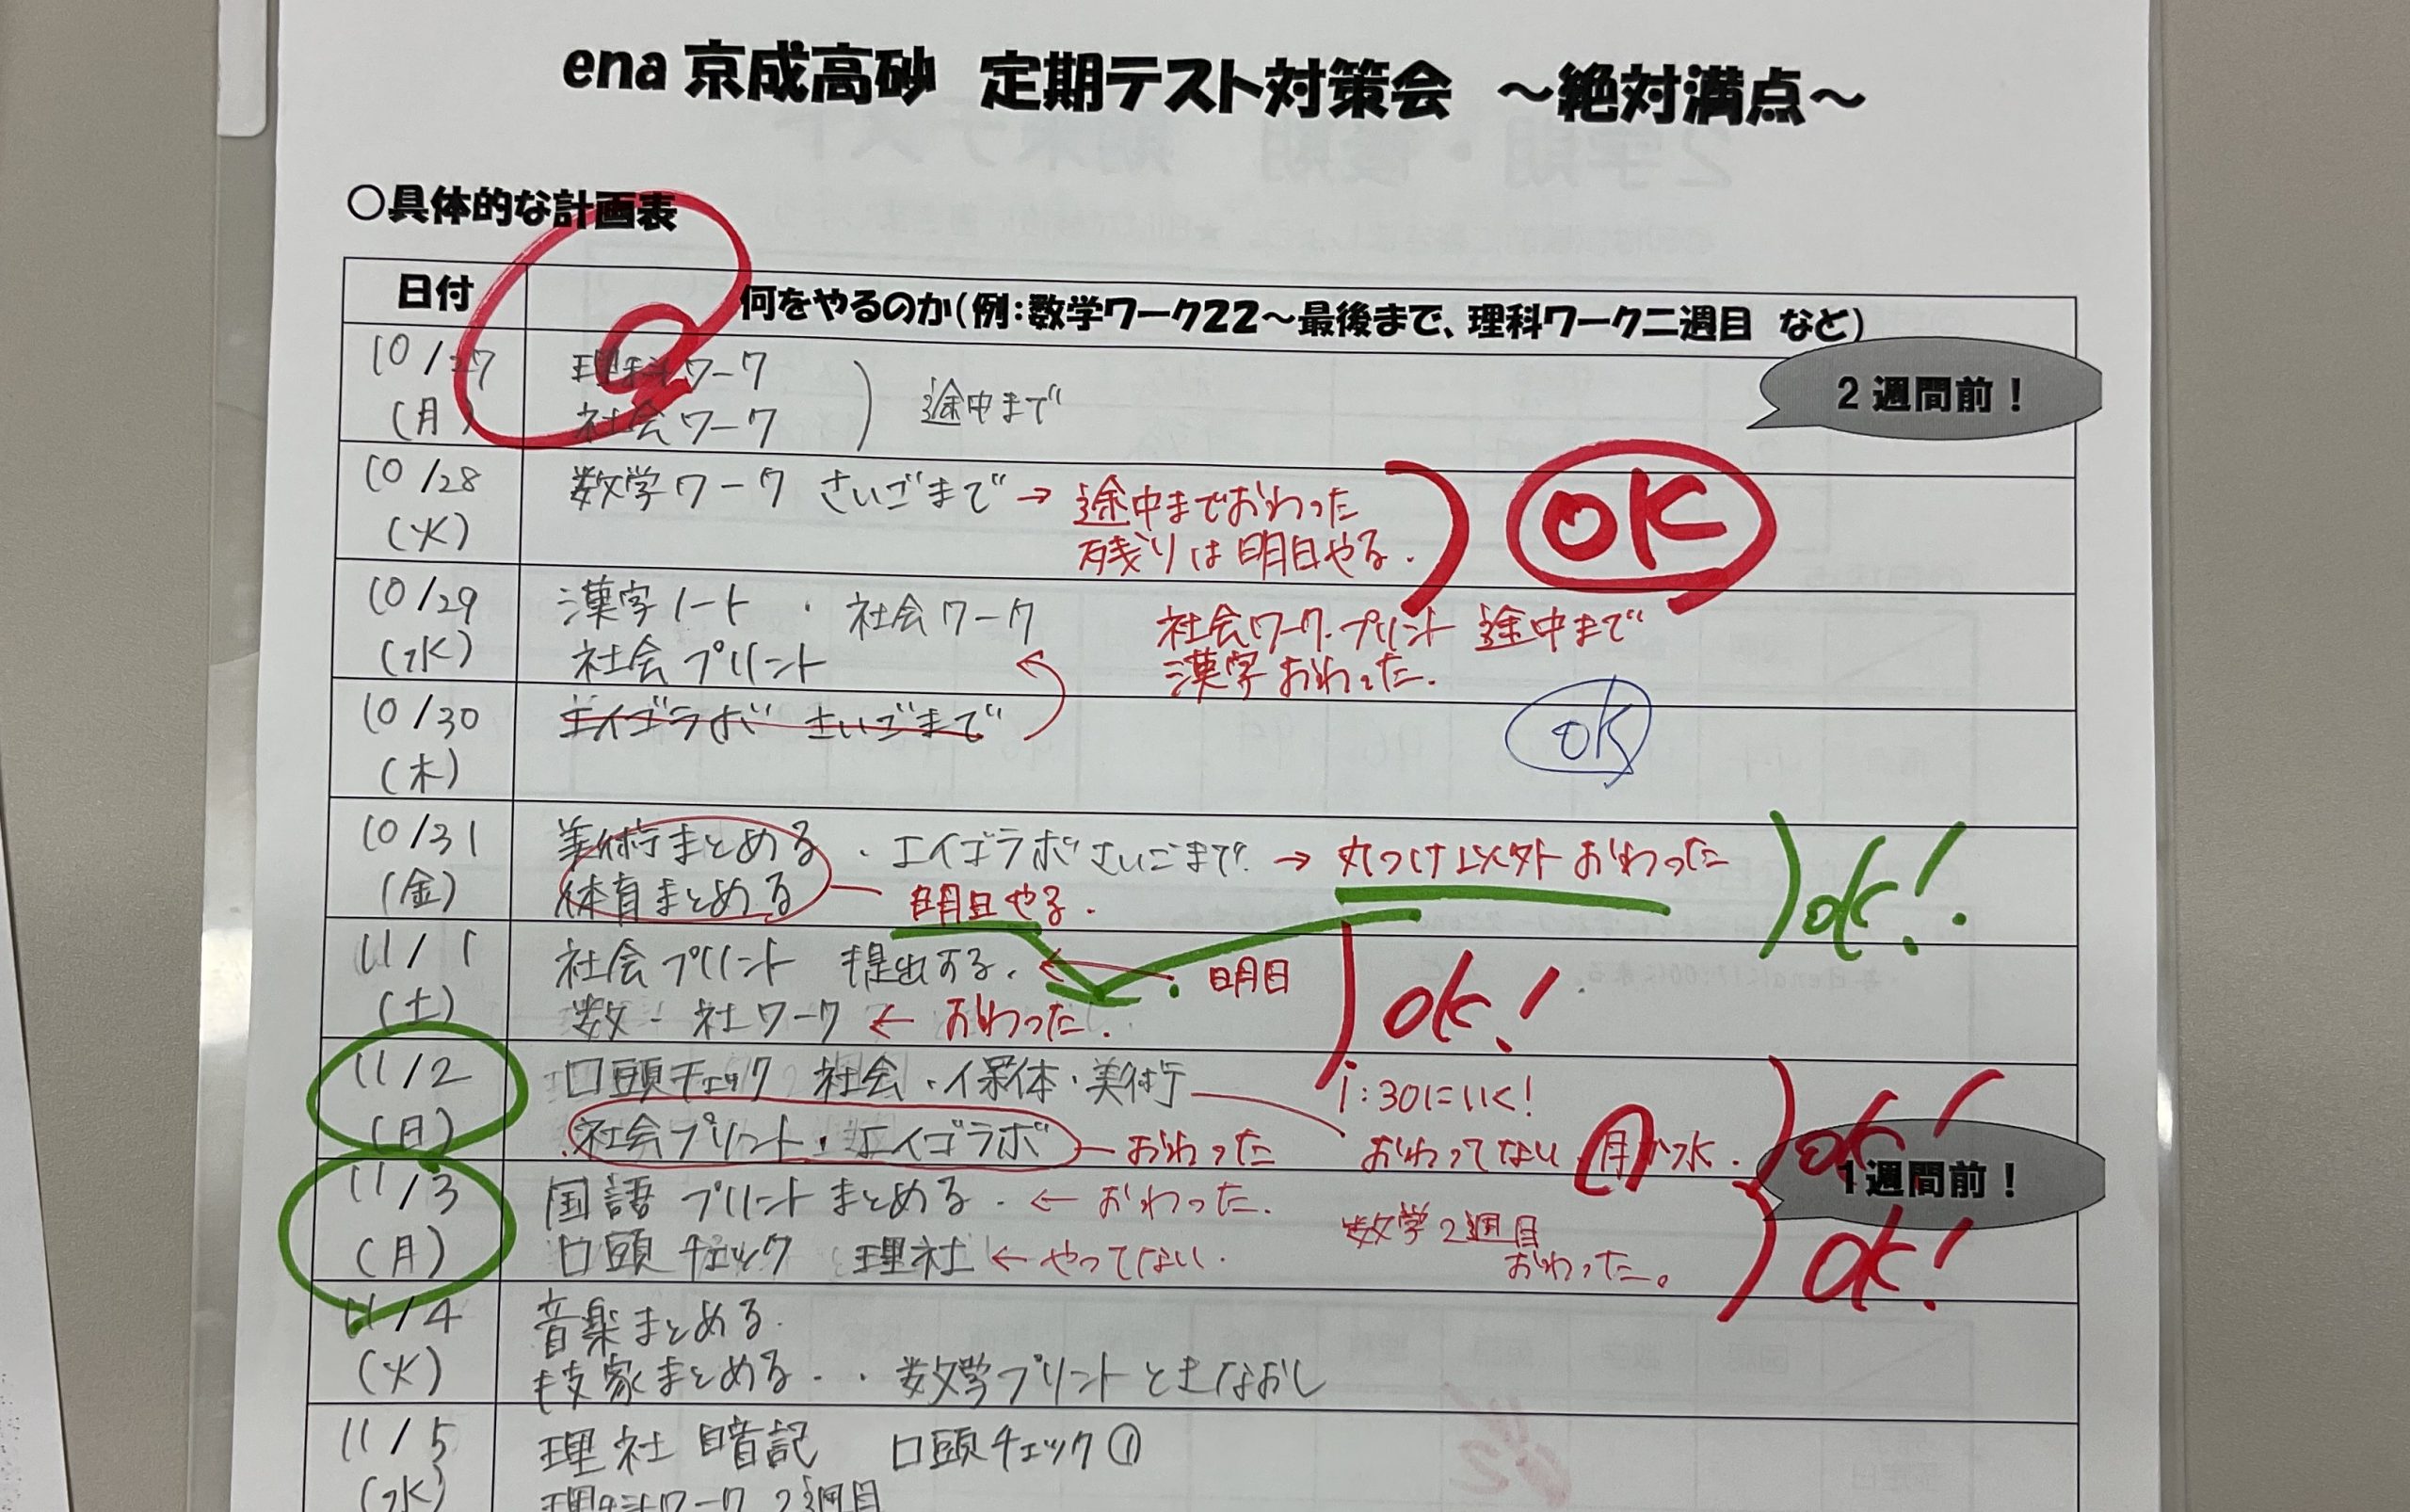 ena 京成高砂　定期テスト対策会　～絶対満点～
○具体的な計画表
日付　何をやるのか（例：数学ワーク２２～最後まで、理科ワーク二週目　など）
２週間前！
10/27
(月)
理科ワーク
社会ワーク
途中まで
10/28
(火)
数学ワーク さいごまで → 途中までおわった
残りは明日やる.
OK
10/29
(水)
漢字ノート ・ 社会ワーク
社会プリント
社会ワーク・プリント 途中まで
漢字おわった.
10/30
(木)
エイゴラボ さいごまで
OK
10/31
(金)
美術まとめる ・エイゴラボさいごまで → 丸つけ以外おわった
体育まとめる 明日やる.
ok!
11/1
(土)
社会プリント 提出する. ← 明日
数・社ワーク ← おわった.
ok!
11/2
(日)
口頭チェック 社会・保体・美術
1:30にいく!
社会プリント・エイゴラボ おわった
おわってない 月か水.
ok!
１週間前！
11/3
(月)
国語プリントまとめる. ← おわった.
口頭チェック 理社 ← やってない.
数学2週目
おわった。
ok!
11/4
(火)
音楽まとめる.
技家まとめる. ・数学プリントときなおし
11/5
(水)
理社暗記 口頭チェック①
理科ワーク2週目